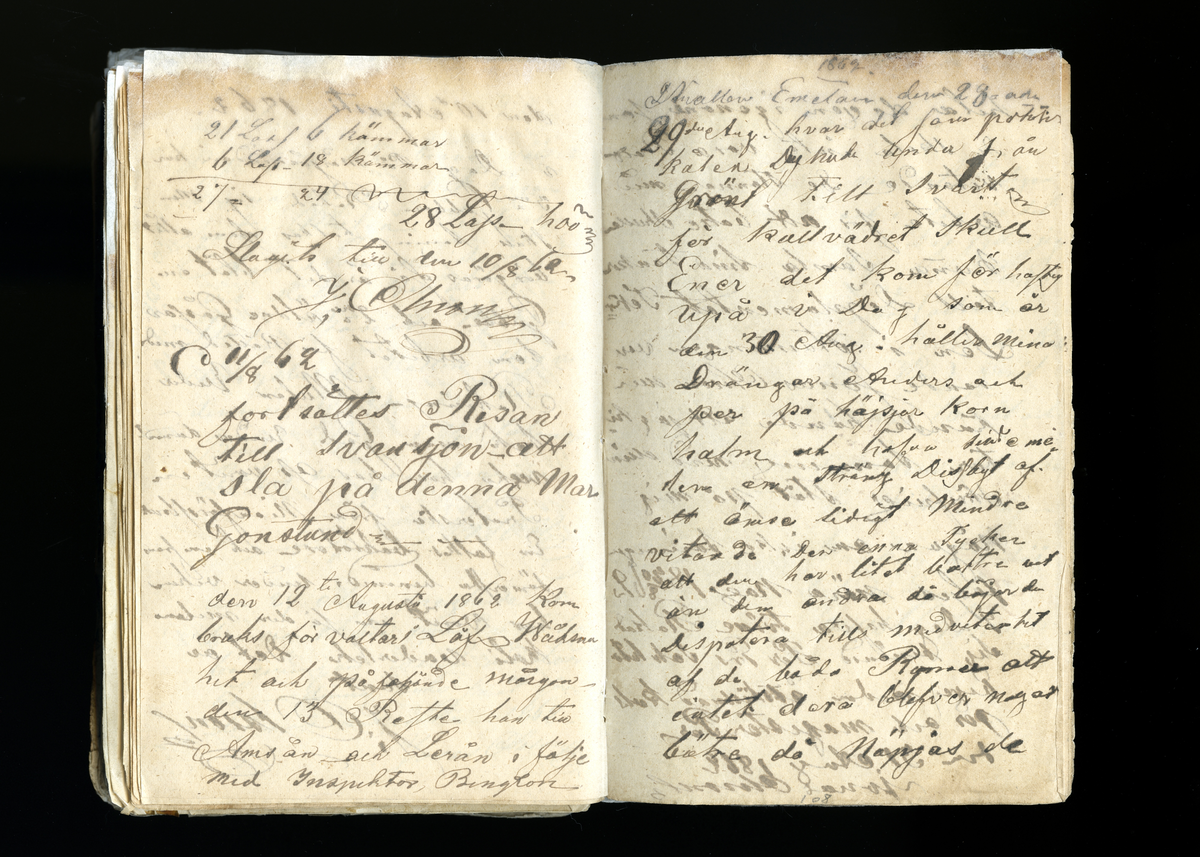 21 Lass 6 hämmar
6 Lass 18 hämmar
27 24
28 Lass höö
till den 10/8 62
J. Olmon
11/8 62
fortsattes Resan
till Svansjön att
slå på denna Mar
Gonstund
den 12te Augusti 1862 Kom
för valtari Löf Wådma
hit och påföljande morgon
den 13 Reste han till
Amsån och Lerån i följe
med Inspektor Bengson
1862
Emelan den 28 och
29de Aug. hvar det som
kålen Dykude unda från
Grönt till Svart
för kallvädret Skull
Ener det kom för hastig
Upå i Dag som är
den 30 Aug: håller Mina
Drängar Anders och
per på häsjor Korn
halm och hafva
dem en Streng af
att ämse tidigt Mindre
vitande Den enna Tycker
att dem har litet bättre vet
än dem andra då börjar de
Dispotera tills medvitenhet
af de båda Rymer att
intet dera blefver nogat
bätre då Näpjas de
108